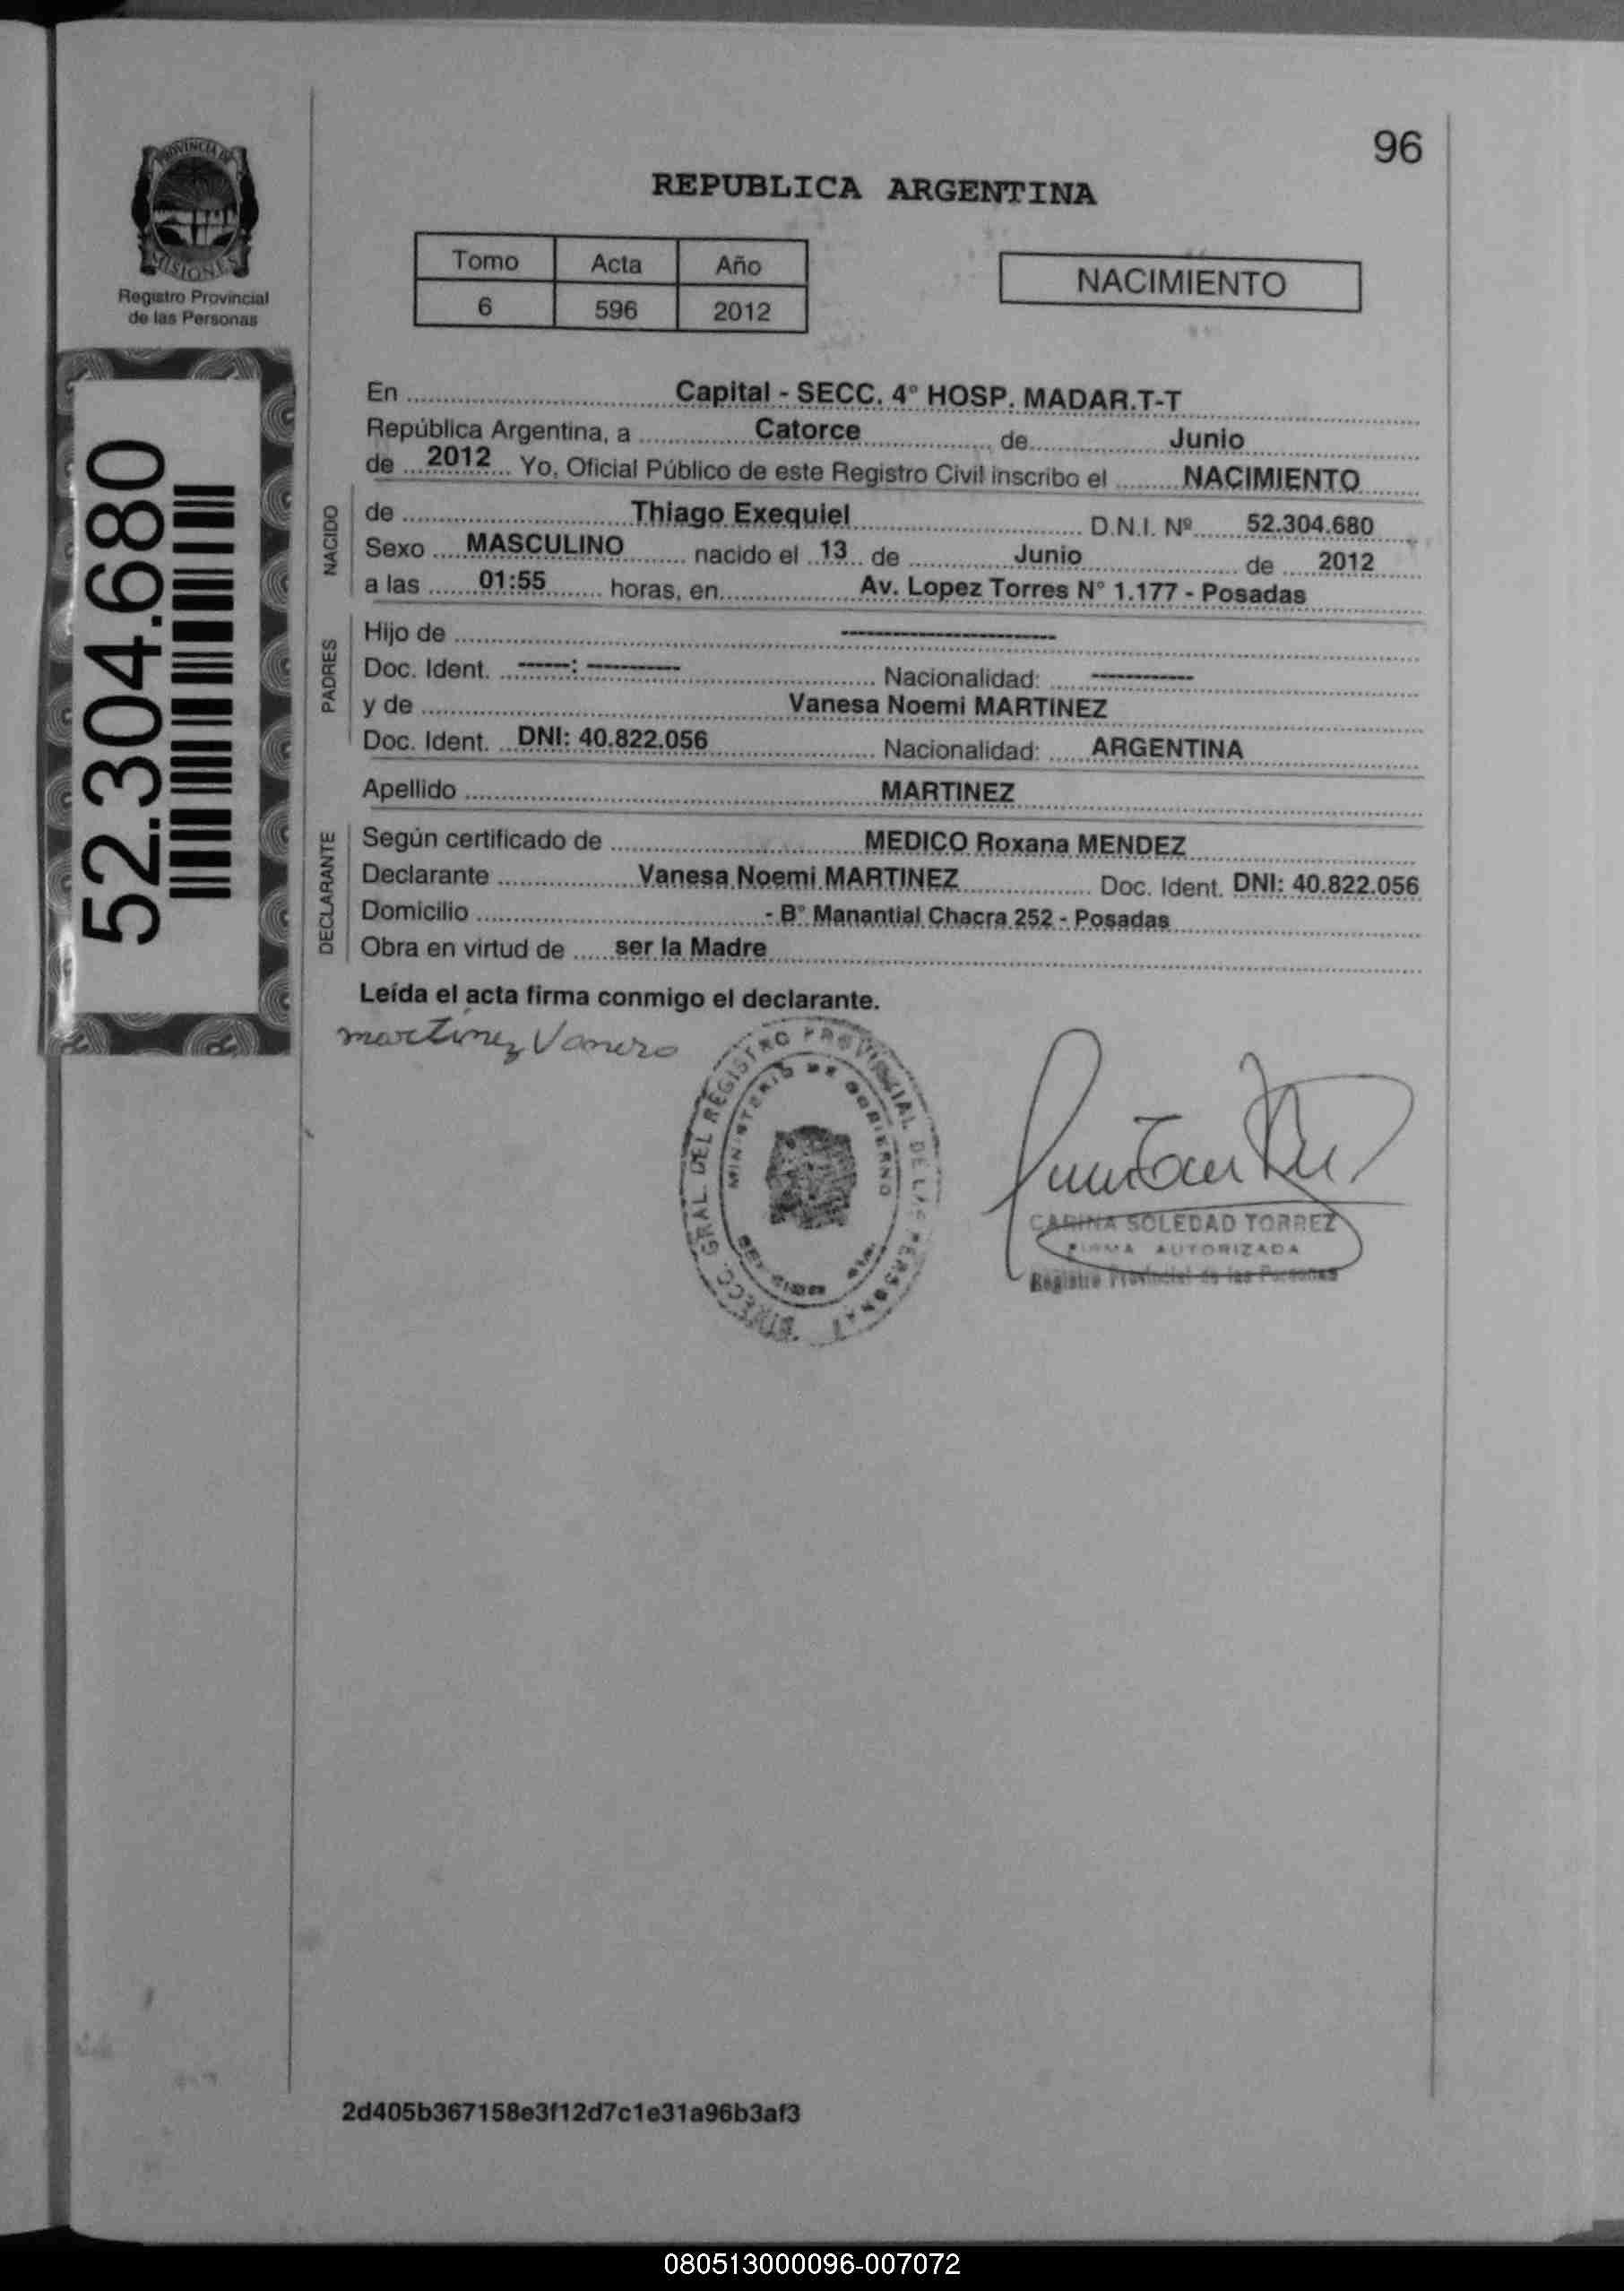 96
PROVINCIA DE
MISIONES
Registro Provincial
de las Personas
REPUBLICA ARGENTINA
Tomo Acta Año
6 596 2012
NACIMIENTO
52.304.680
En Capital - SECC. 4° HOSP. MADAR.T-T
República Argentina, a Catorce de Junio
de 2012 Yo, Oficial Público de este Registro Civil inscribo el NACIMIENTO
NACIDO
de Thiago Exequiel D.N.I. Nº 52.304.680
Sexo MASCULINO nacido el 13 de Junio de 2012
a las 01:55 horas, en Av. Lopez Torres N° 1.177 - Posadas
PADRES
Hijo de ------------------------
Doc. Ident. ------: ---------- Nacionalidad: ------------
y de Vanesa Noemi MARTINEZ
Doc. Ident. DNI: 40.822.056 Nacionalidad: ARGENTINA
Apellido MARTINEZ
DECLARANTE
Según certificado de MEDICO Roxana MENDEZ
Declarante Vanesa Noemi MARTINEZ Doc. Ident. DNI: 40.822.056
Domicilio - B° Manantial Chacra 252 - Posadas
Obra en virtud de ser la Madre
Leída el acta firma conmigo el declarante.
martinez Vanesa
DIRECC. GRAL. DEL REGISTRO PROVINCIAL DE LAS PERSONAS
MINISTERIO DE GOBIERNO
CARINA SOLEDAD TORREZ
FIRMA AUTORIZADA
Registro Provincial de las Personas
2d405b367158e3f12d7c1e31a96b3af3
080513000096-007072